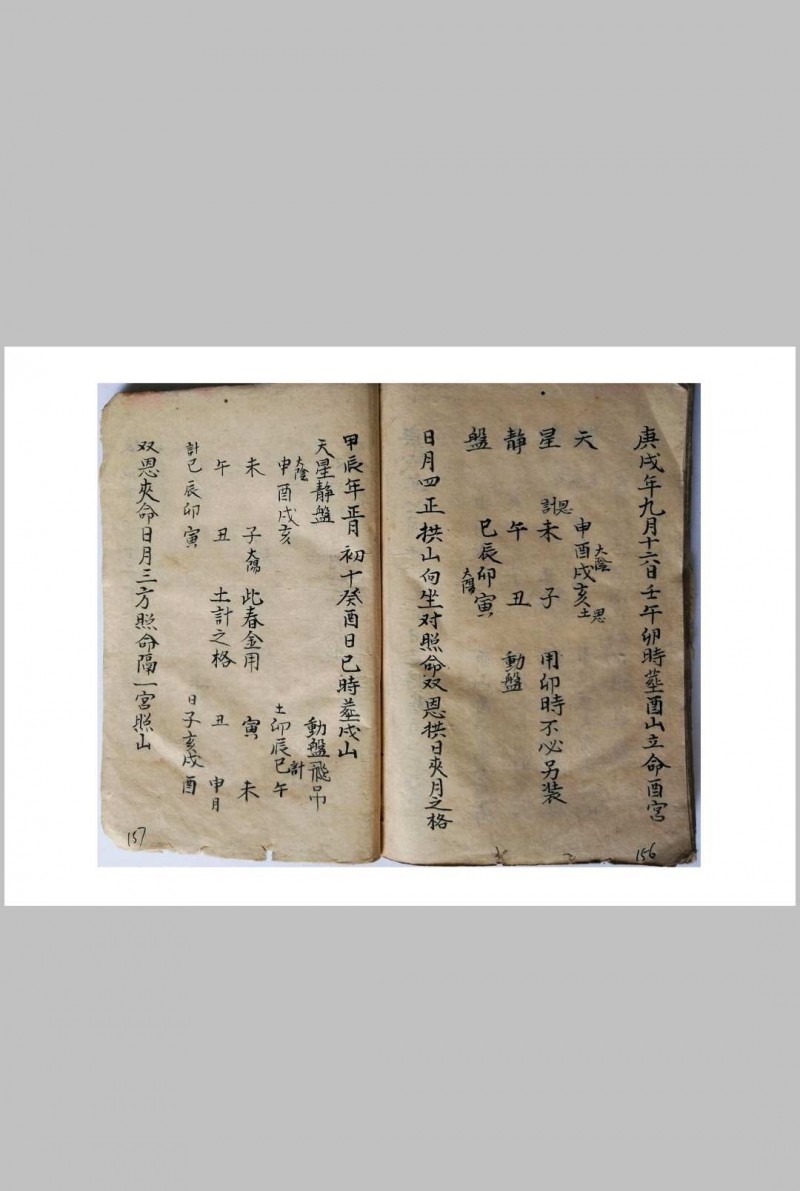 庚戌年九月十六日壬午卯時葬酉山立命酉宮
天
大陰 恩
申酉戌亥土
星 計恩未 子 用卯時不必另装
靜 午 丑 動盤
盤 巳辰卯寅
大陽
日月四正拱山向坐对照命双恩拱日夾月之格
156
甲辰年正月初十癸酉日巳時葬戌山
天星靜盤 動盤飛吊
大陰
申酉戌亥 土卯辰巳計午
未 子大陽 此春金用 寅 未
午 丑 土計之格 丑 申月
計巳辰卯寅 日子亥戌酉
双恩夾命日月三方照命隔一宮照山
157